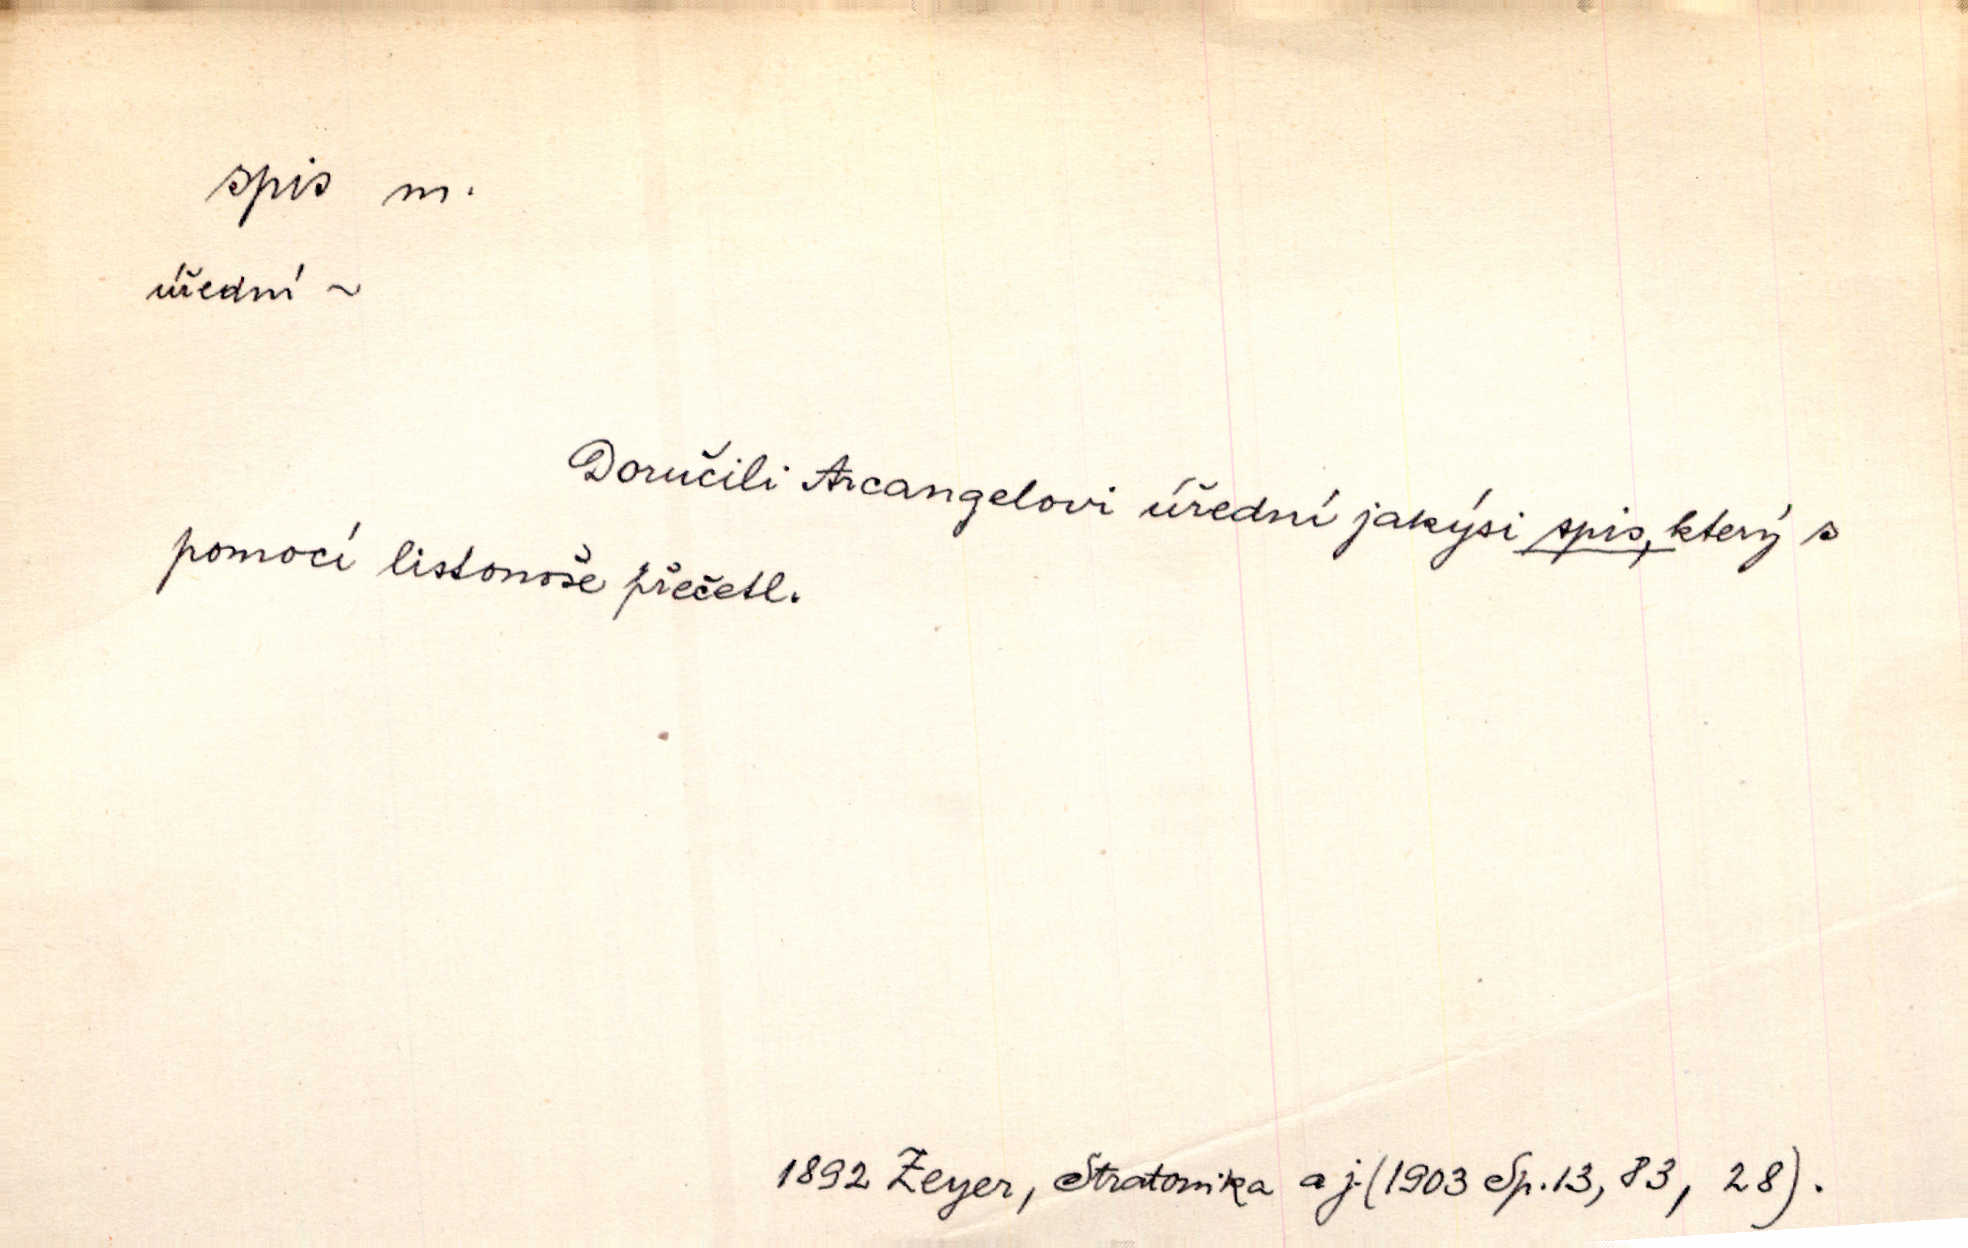 spis m.
úřední ~
Doručili Arcangelovi úřední jakýsi spis, který s
pomocí listonoše přečetl.
1892 Zeyer, Stratonika a j. (1903 Sp. 13, 83, 28).